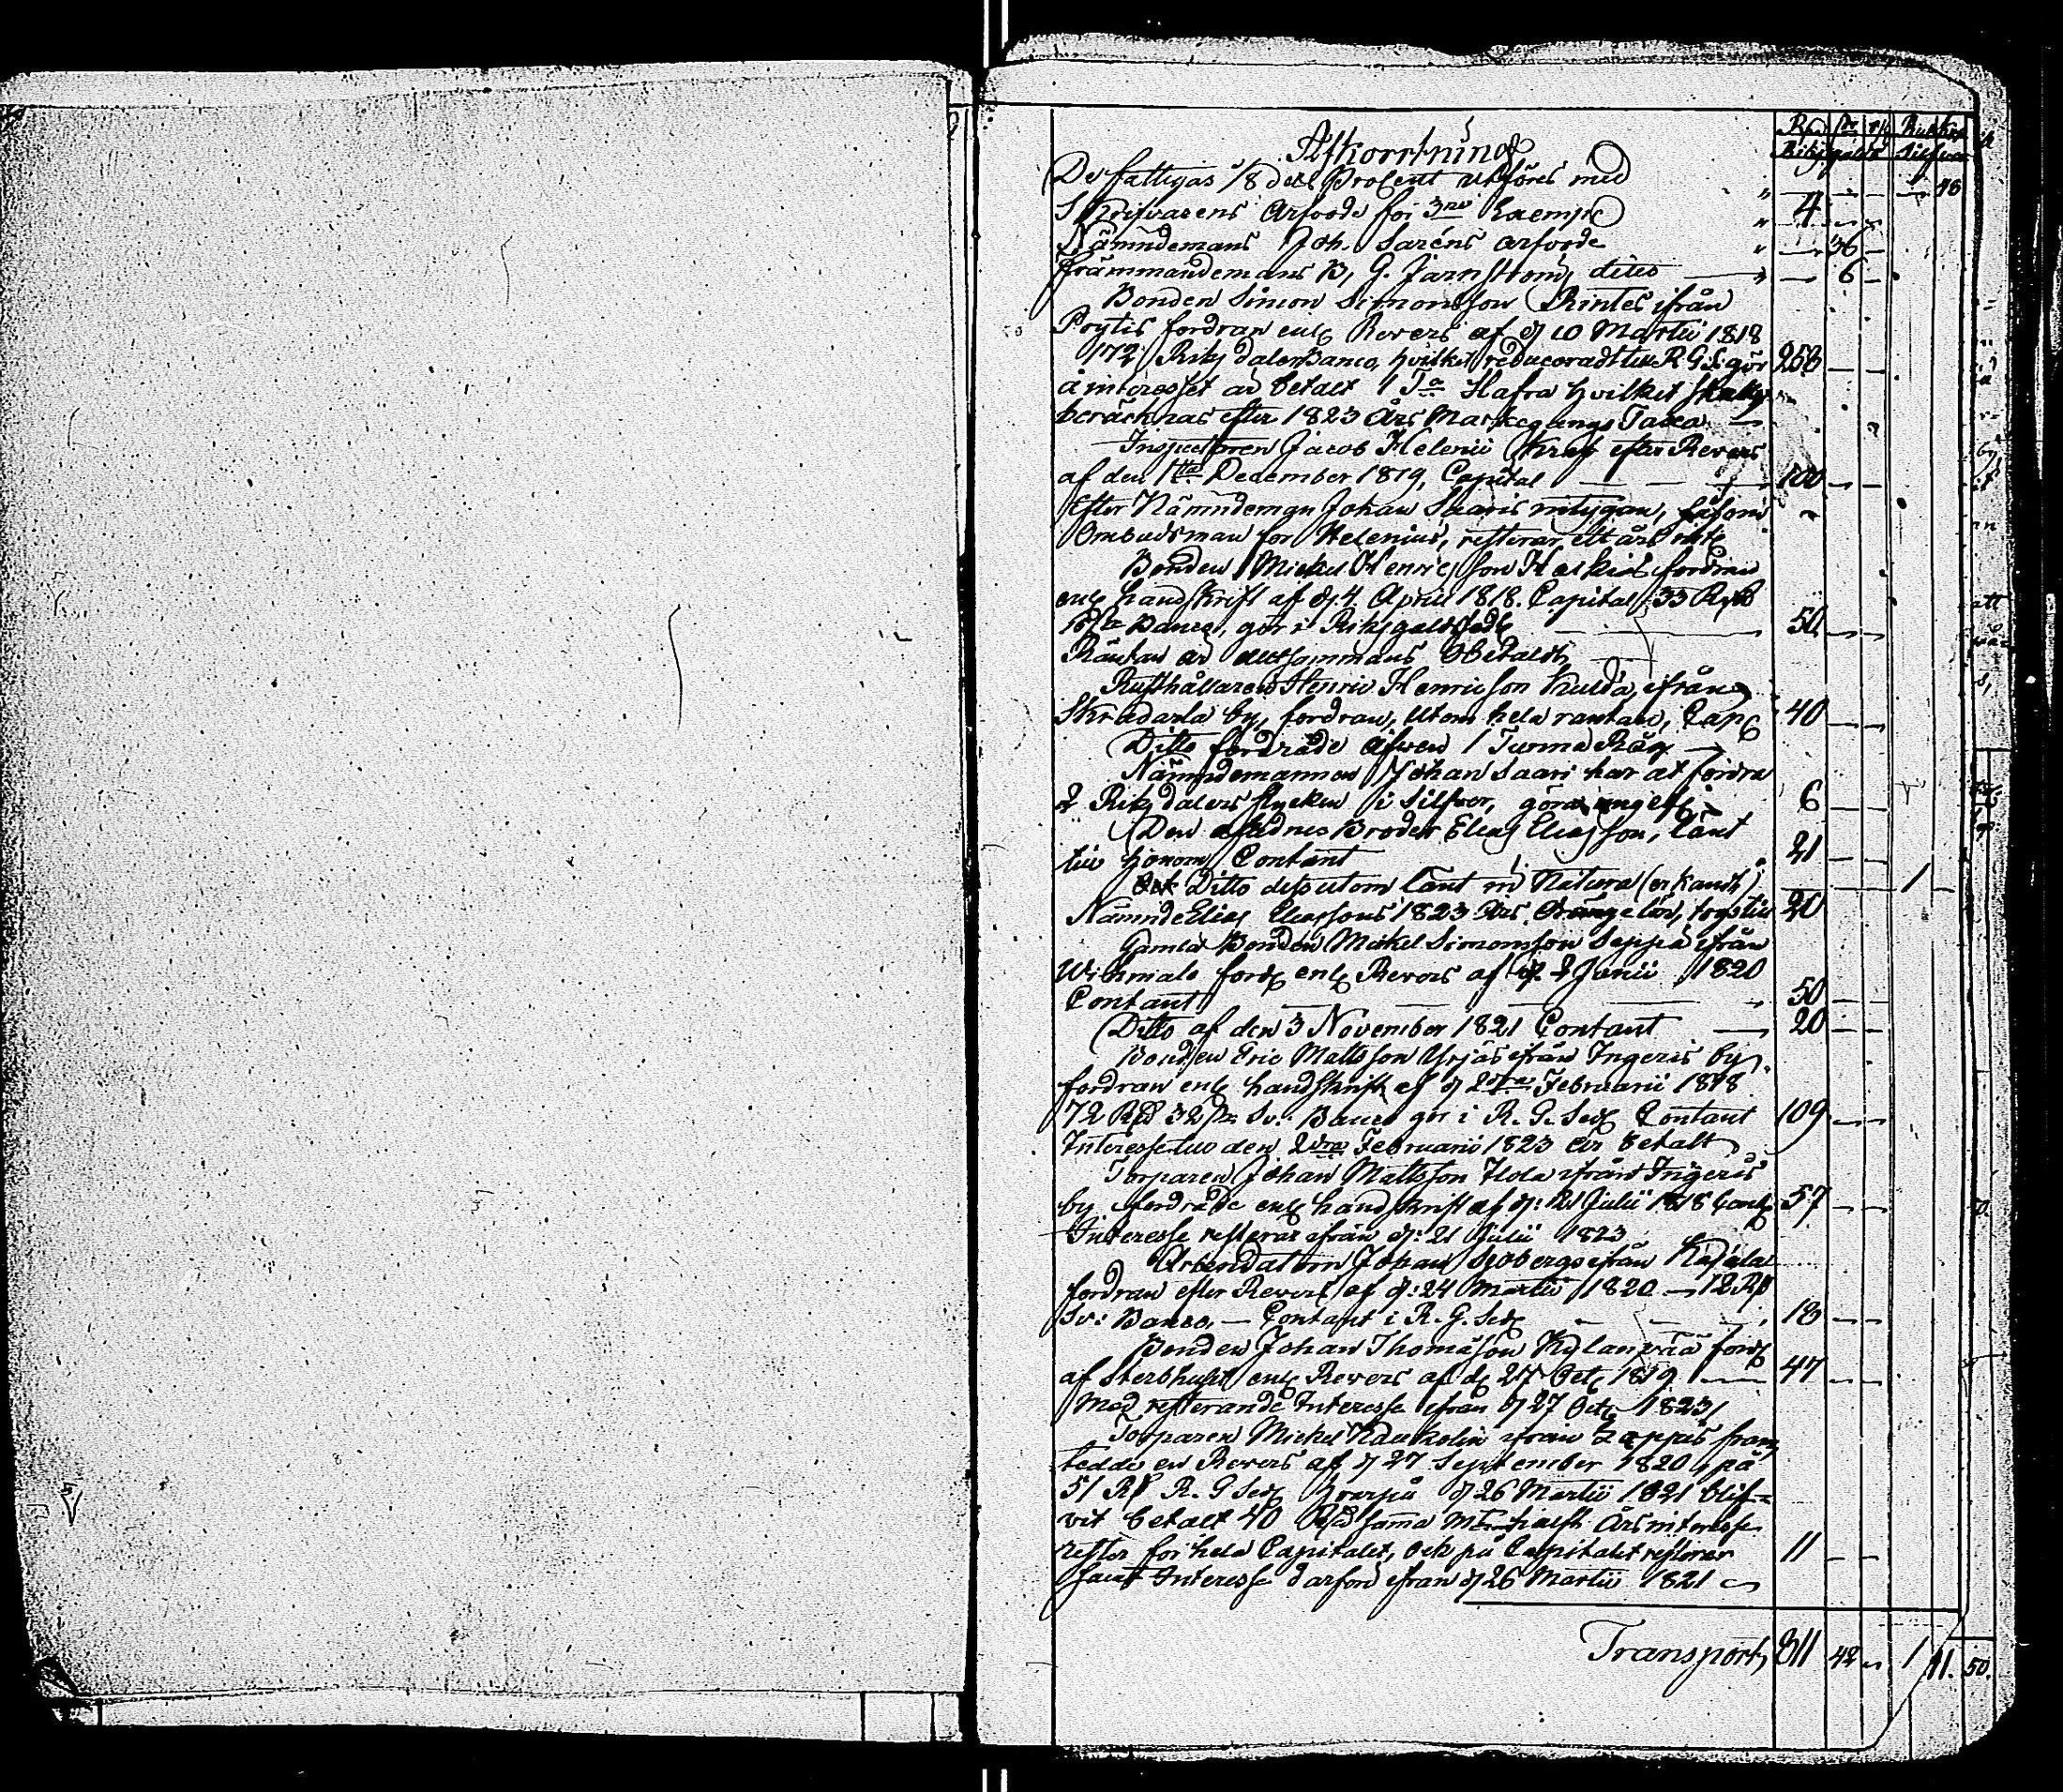 Afkorrtning
Rd sk rst Rub Kop
Riksgäldr Silfver
De fattigas 1/8 dels Procent utföres med " — — — — 48
Skrifvarens Arfvode för 3ne Exempl " 4 — —
Nämndemans Joh. Saréns arfvode " — 36 —
främmandemans B. G. Järnström, dito — " — 6 —
Bonden Simon Simonsson Rintes ifrån
Pöytis fordran enl Revers af d 10 Martii 1818
172 Riksdaler Banco, hvilket reduceradt till R.G.S. gör 258 — —
å interesset är betalt 1 Ta Hafra hvilket
beräcknas efter 1823 Års Markegångs Taxa —
Inspectoren Jacob Helenii Kraf efter Revers
af den 1ta December 1819, Capital — — — 100 — —
Efter Nämndeman Johan Saaris intygan, såsom
Ombudsman for Helenius, resterar ett års
Bonden Mickel Henricsson Heikilä fordran
enl handskrift af d. 4 April 1818. Capital 33 Rd
16 sk Banco, gör i Riksgälds Sedl — 50 — —
Räntan är alltsammans Obetaldt
Rusthållaren Henric Henricsson Kulda, ifrån
Skradarla by, fordran, utom hela räntan, Cap 40 — —
Ditto fordrade äfwen 1 Tunna Råg —
Nämndemannen Johan Saari har at fordra
2 Riksdalers stycken i Silfver, göra 6 — —
Den aflidnes Broder Elias Eliasson, länt
till honom Contant 21 — —
Ditto dessutom länt in Natura (erkandt) — — — 1 —
Nämnde Elias Eliassons 1823 Års Drängelön, 20
Gamla Bonden Mickel Simonsson Seppä ifrån
Wihmalo ford enl Revers af d. 2 Junii 1820
Contant — — — 50 — —
Ditto af den 3 November 1821 Contant — 20 — —
Bonden Eric Mattsson Yrjäs ifrån Ingeris by,
fordran enl handskrift af d 2dra Februarii 1818
72 Rd 32 sk Sv: Banco gör i R. G. Sedl Contant 109 — —
Interesse till den 2dra Februarii 1823 är betalt
Torparen Johan Mattsson Ilola ifrån Ingeris
by fordrade enl handskrift af d: 21 Julii 1818 Cont 57 — —
Interesse resterar ifrån d: 21 Julii 1823
Arrendatorn Johan Sjobergs ifrån Karjala
fordran efter Revers af d: 24 Martii 1820 — 12 Rd
Sv: Banco, — Contant i R. G. Sedl — — 18 — —
Bonden Johan Thomasson Kylänpää ford
af Sterbhuset enl Revers af d 27 Oct 1819 — 47 — —
Med resterande Interesse ifrån d 27 Oct 1823
Torparen Mickel Kaukolin ifrån Lappis fram
tedde en Revers af d 27 September 1820 på
51 Rd R. G Sedl hvarpå d 26 Martii 1821 blif-
vit betalt 40 Rd samma halft Års interesse
rester för hela Capitalet, och på Capitalet resterar 11 — —
samt Interesse därföre ifrån d 26 Martii 1821
Transport, 811 42 1 11. 50.